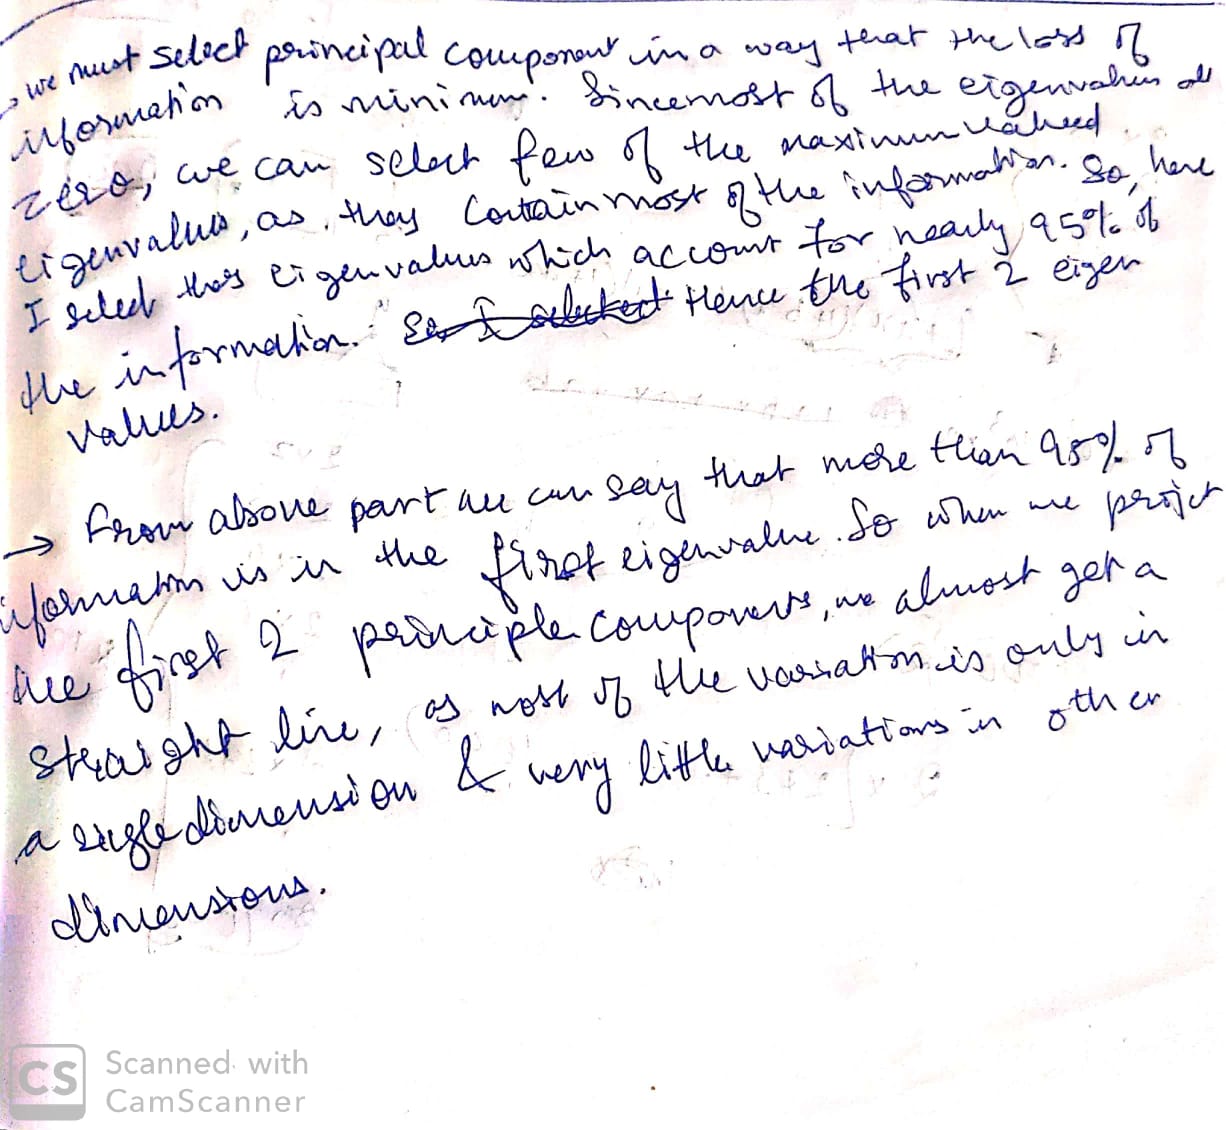 → we must select principal component in a way that the loss of
information is minimum. Since most of the eigenvalues are
zero, we can select few of the maximum valued
eigenvalues, as they contain most of the information. So, here
I select thos eigenvalues which account for nearly 95% of
the information. So I selected Hence the first 2 eigen
values.
→ From above part we can say that more than 95% of
information is in the first eigenvalue. So when we project
the first 2 principle components, we almost get a
straight line, as most of the variation is only in
a single dimension & very little variations in other
dimensions.
CS Scanned with
CamScanner